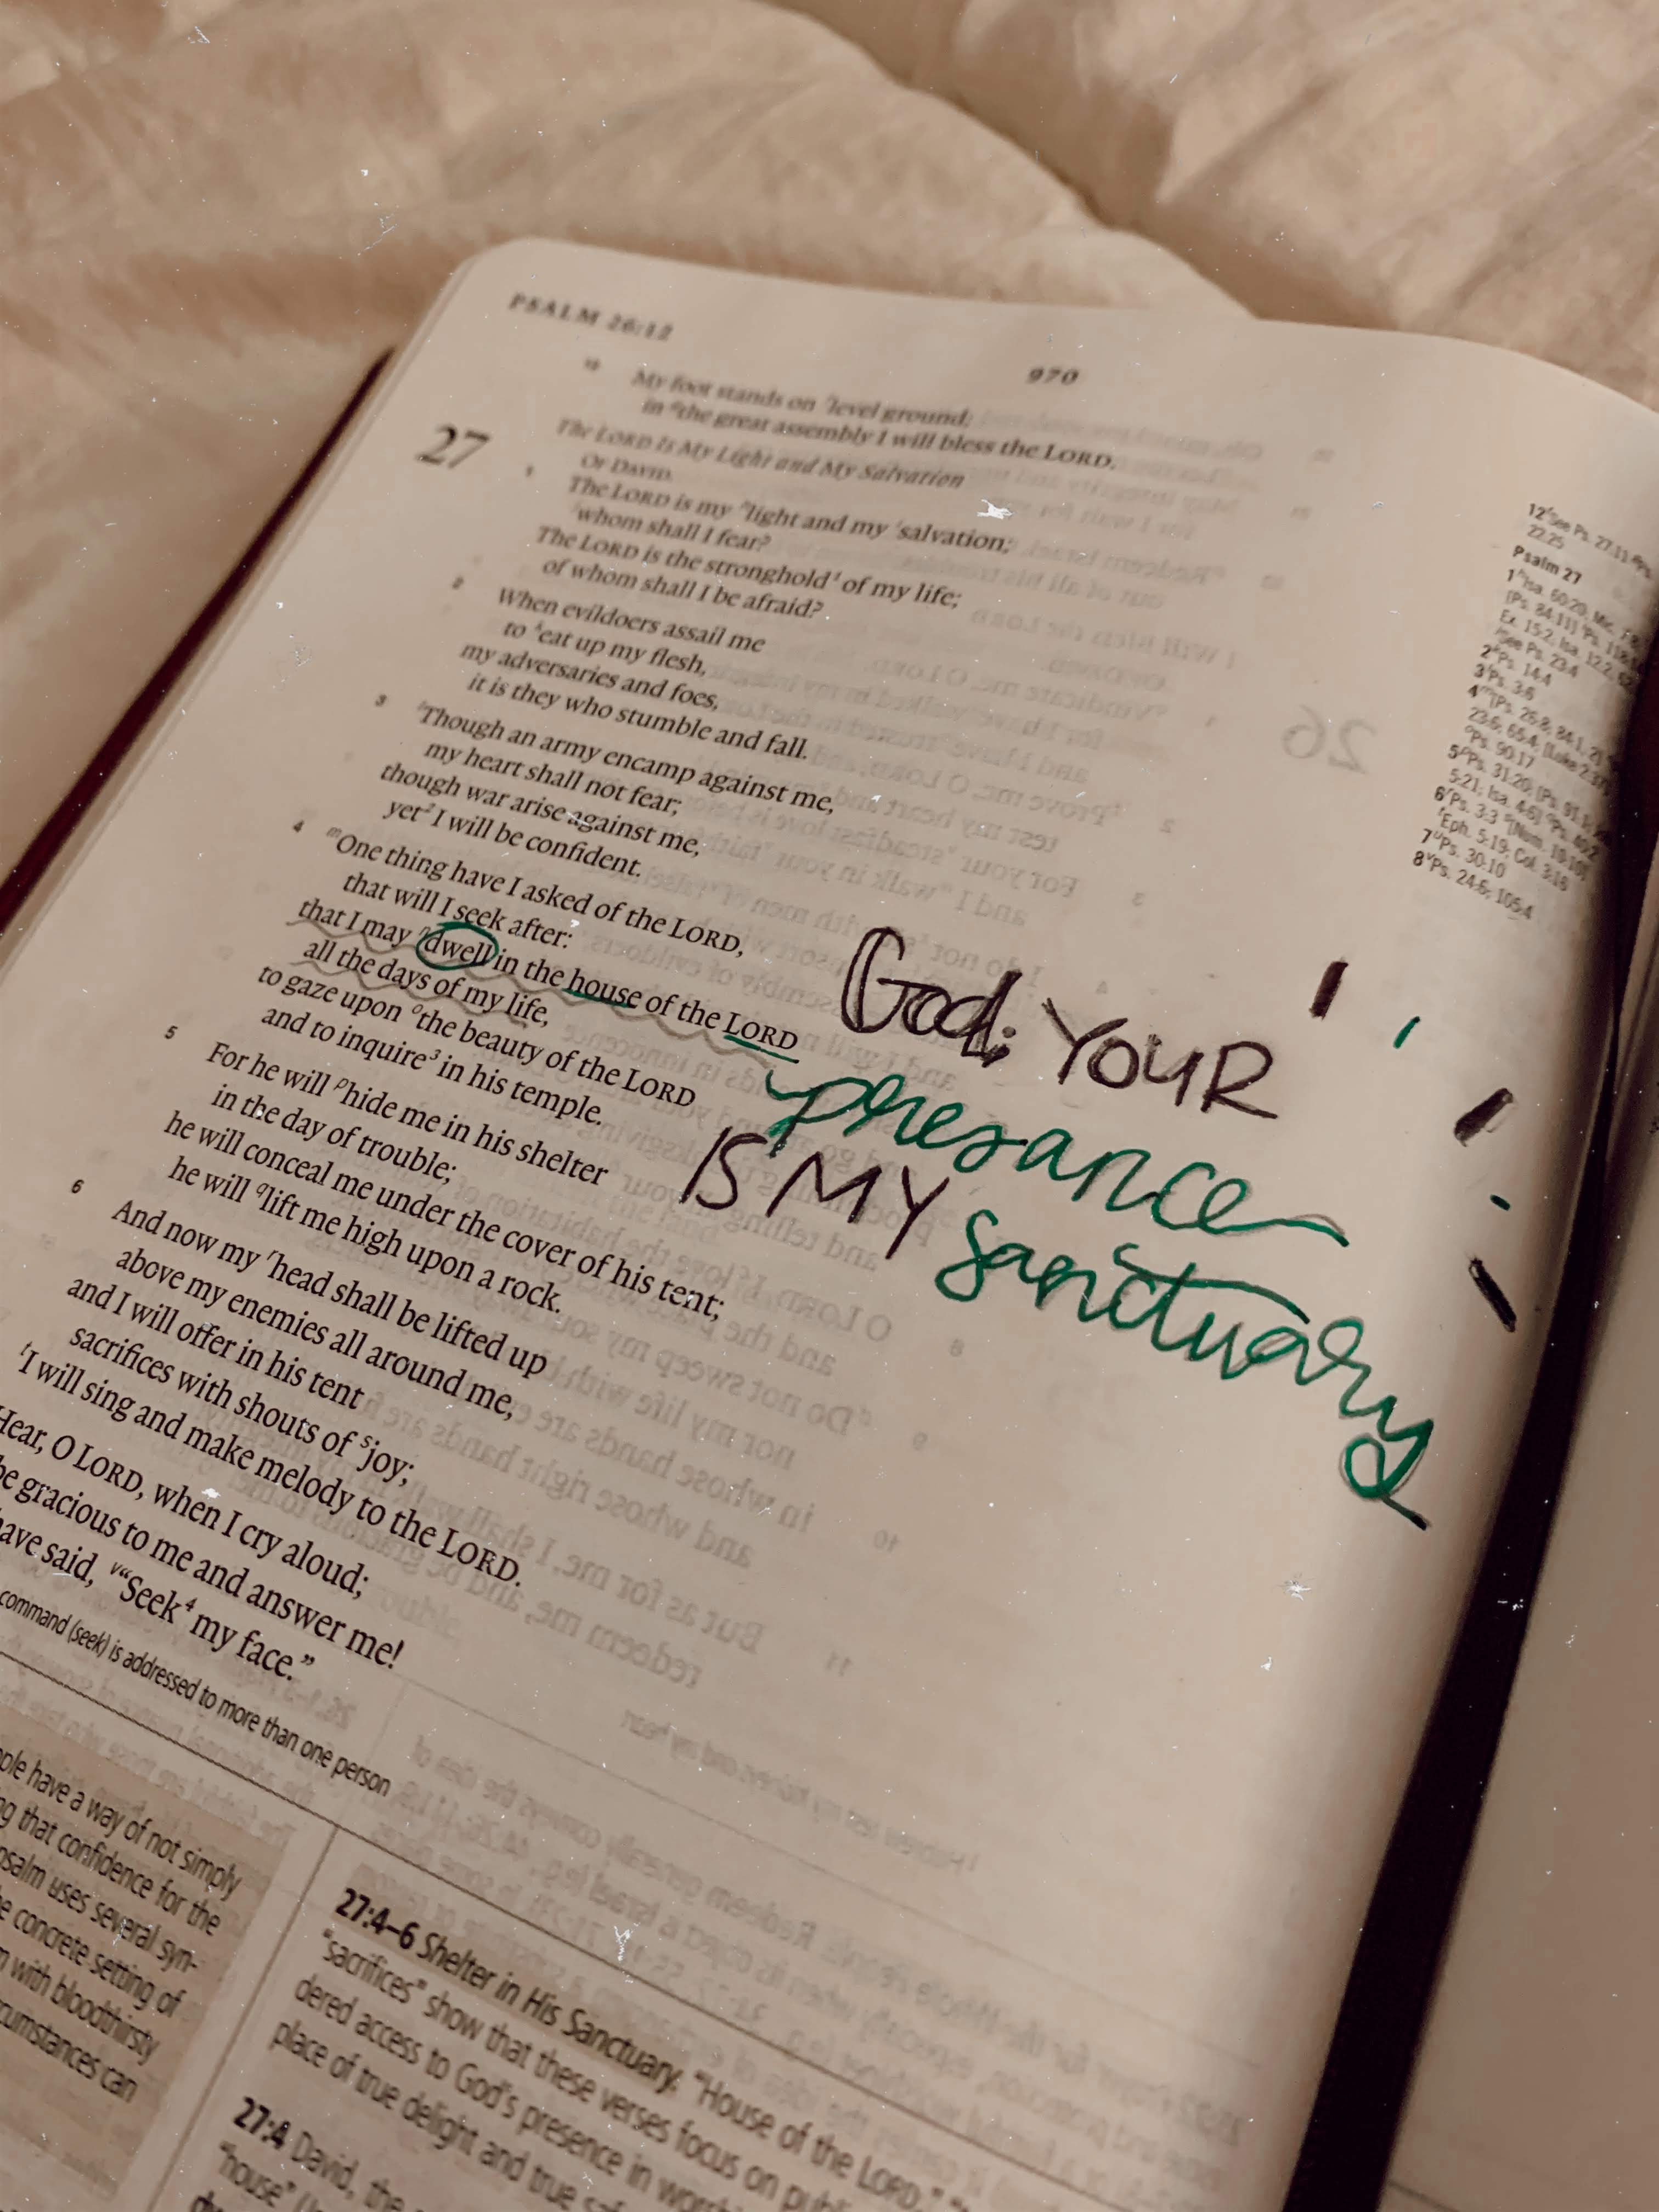 PSALM 26:12
970
12 My foot stands on level ground;
in the great assembly I will bless the LORD.
The LORD Is My Light and My Salvation
27 OF DAVID.
1 The LORD is my hlight and my isalvation;
jwhom shall I fear?
The LORD is the stronghold1 of my life;
of whom shall I be afraid?
2 When evildoers assail me
to keat up my flesh,
my adversaries and foes,
it is they who stumble and fall.
3 lThough an army encamp against me,
my heart shall not fear;
though war arise against me,
yet2 I will be confident.
4 mOne thing have I asked of the LORD,
that will I seek after:
that I may ndwell in the house of the LORD
all the days of my life,
to gaze upon othe beauty of the LORD
and to inquire3 in his temple.
5 For he will phide me in his shelter
in the day of trouble;
he will conceal me under the cover of his tent;
he will qlift me high upon a rock.
6 And now my rhead shall be lifted up
above my enemies all around me,
and I will offer in his tent
sacrifices with shouts of sjoy;
tI will sing and make melody to the LORD.
Hear, O LORD, when I cry aloud;
be gracious to me and answer me!
have said, v“Seek4 my face.”
command (seek) is addressed to more than one person
God; YOUR
presance
IS MY sanctuary
Psalm 27
2 kPs. 14:4
3 lPs. 3:6
7 uPs. 30:10
8 vPs. 24:6; 105:4
have a way of not simply
that confidence for the
psalm uses several syn-
concrete setting of
with bloodthirsty
circumstances can
27:4–6 Shelter in His Sanctuary. “House of the LORD,”
“sacrifices” show that these verses focus on
dered access to God's presence in
place of true delight and true
27:4 David, the
“house”